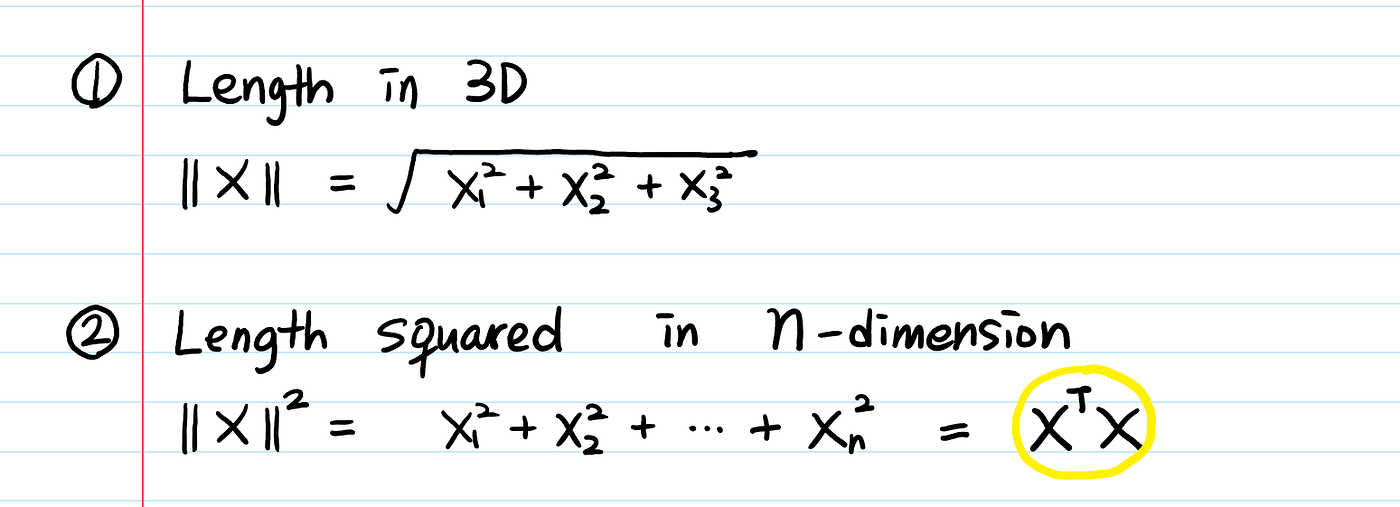 ① Length in 3D
‖X‖ = √(X₁² + X₂² + X₃²)
② Length squared in n-dimension
‖X‖² = X₁² + X₂² + ··· + Xₙ² = XᵀX